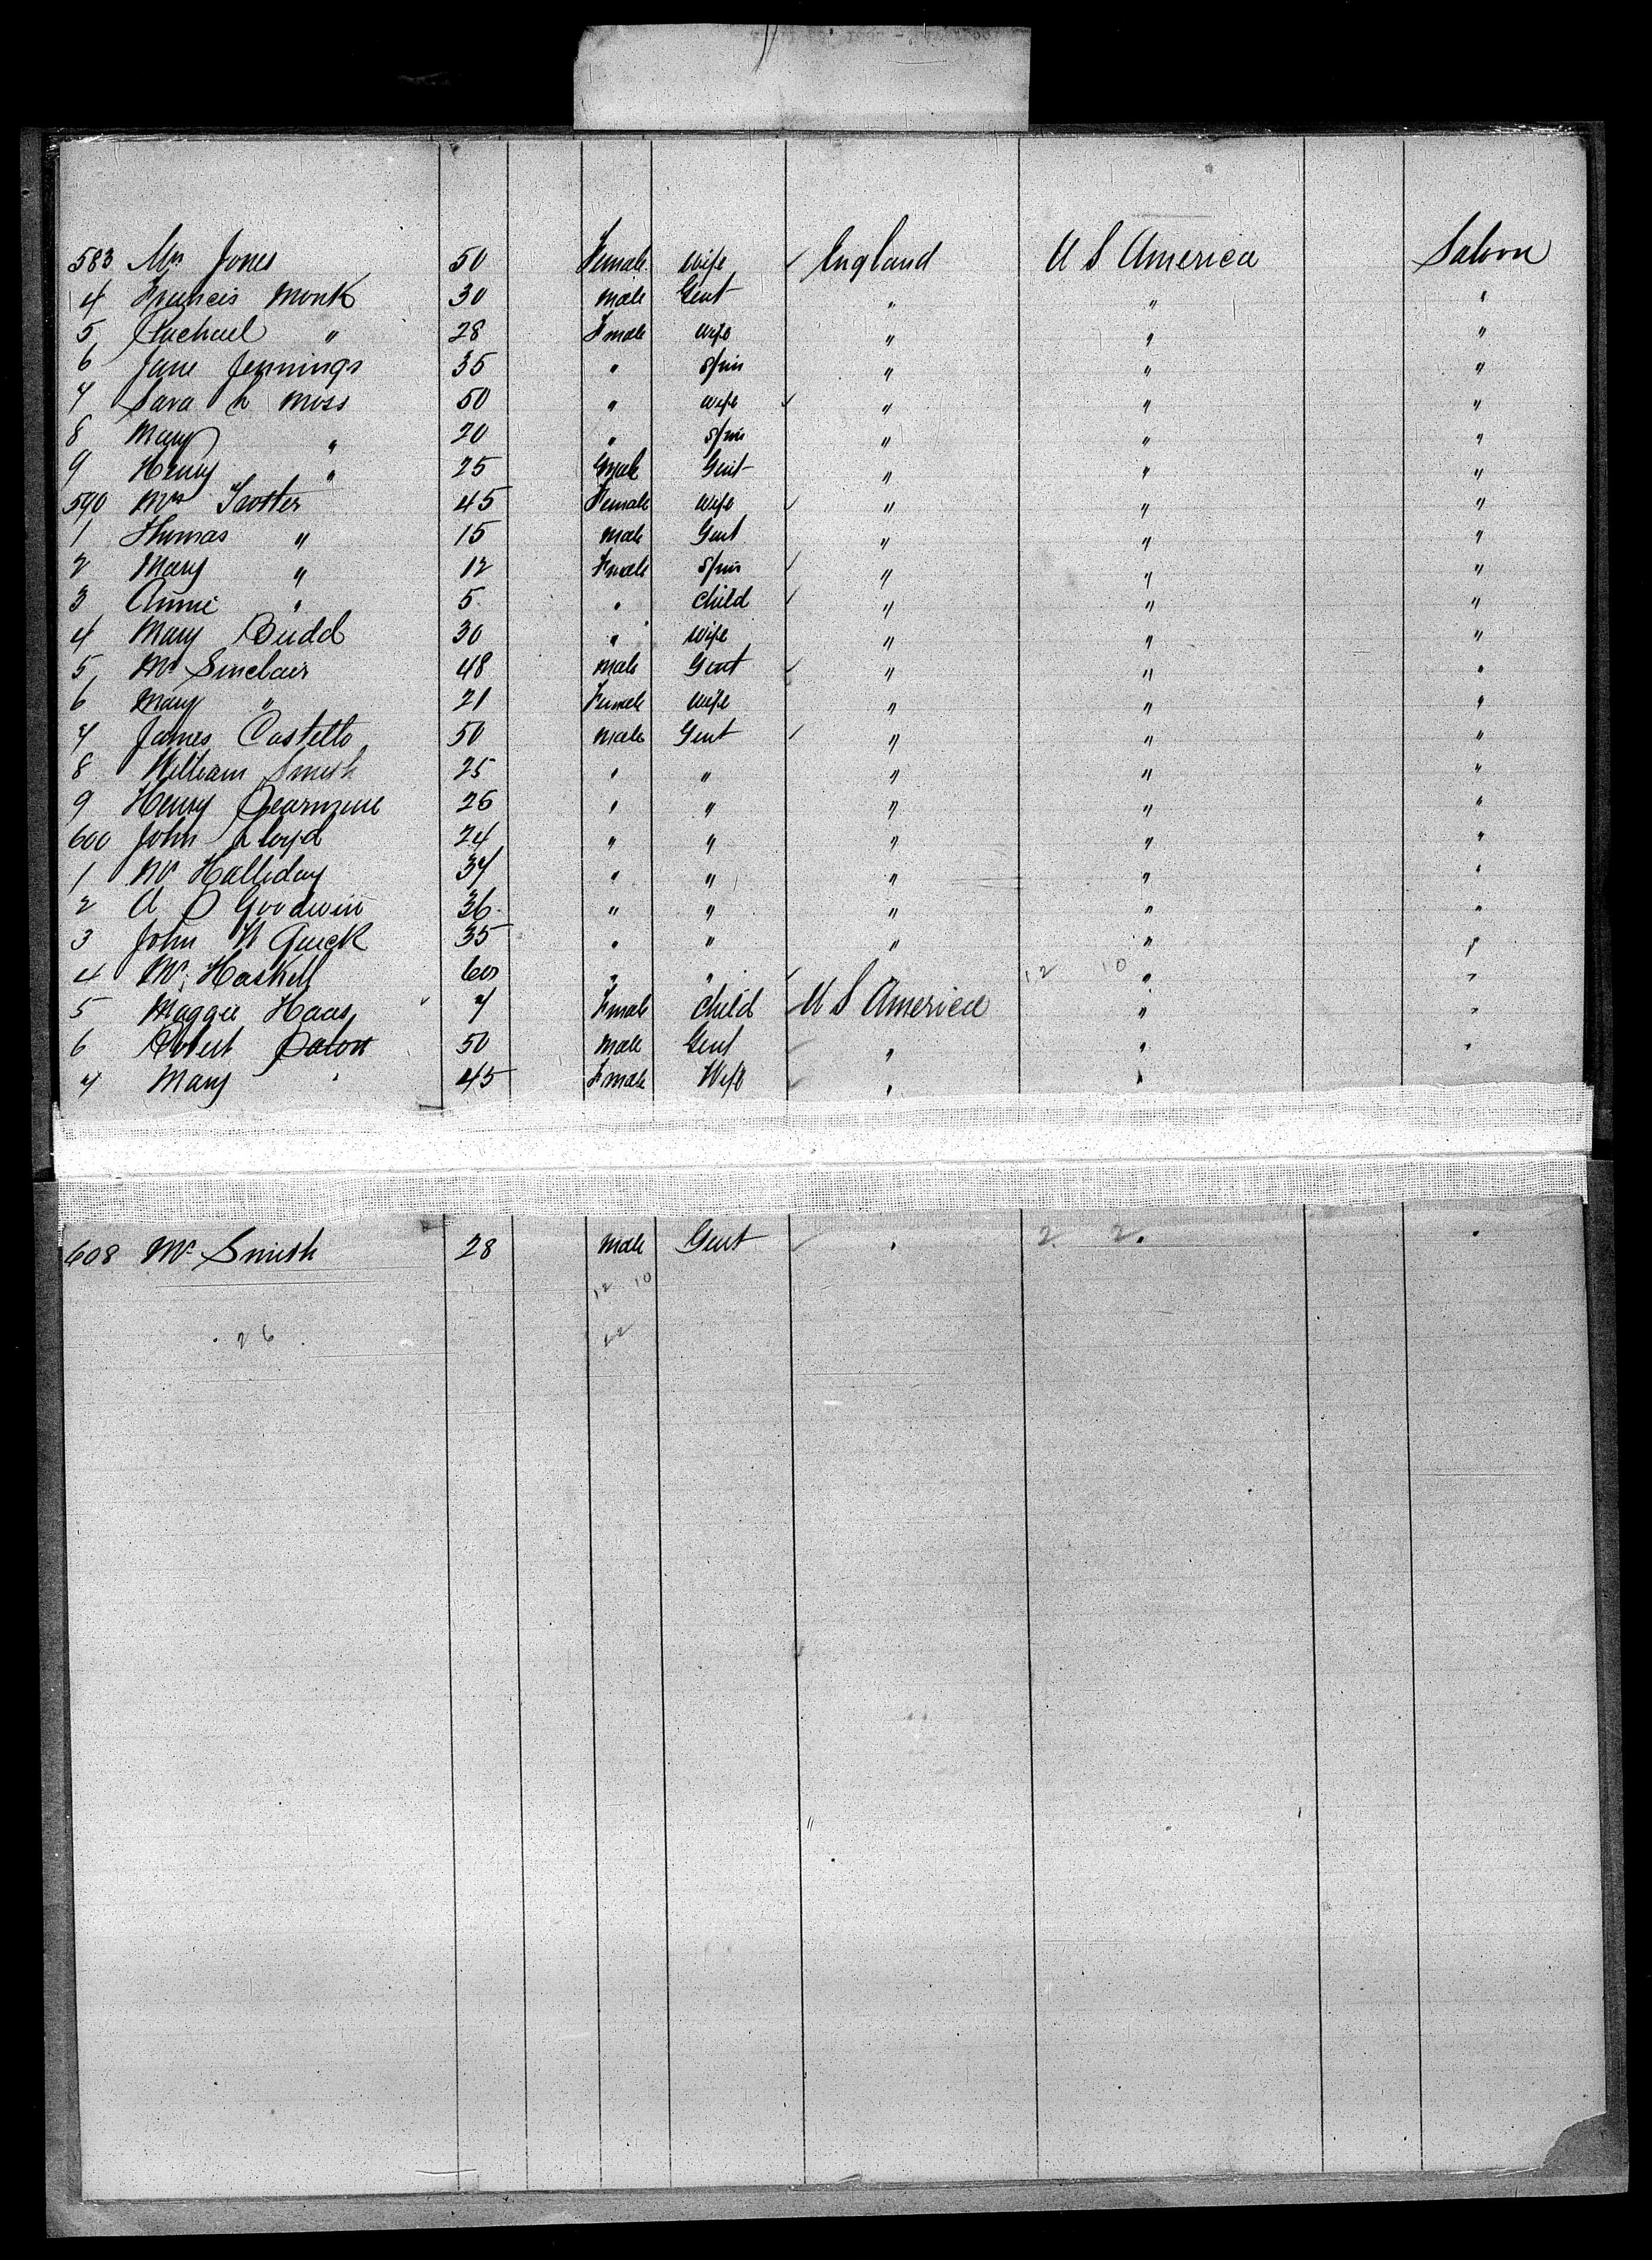 583 Mrs Jones 50 Female wife ✓ England U S America Saloon
4 Francis Monk 30 male Gent " " "
5 Rachael " 28 Female wife " " "
6 Jane Jennings 35 " Spin " " "
7 Sara L Moss 50 " wife ✓ " " "
8 Mary " 20 " Spin " " "
9 Henry " 25 male Gent " " "
590 Mrs Trotter 45 Female wife ✓ " " "
1 Thomas " 15 male Gent " " "
2 Mary " 12 Female Spin ✓ " " "
3 Annie " 5 " child ✓ " " "
4 Mary Budd 30 " wife " " "
5 Mr Sinclair 48 male Gent ✓ " " "
6 Mary " 21 Female wife " " "
7 James Costello 50 male Gent ✓ " " "
8 William Smith 25 " " " " "
9 Henry 26 " " " " "
600 John Lloyd 24 " " " " "
1 Mr Halliday 34 " " " " "
2 A Goodwin 36 " " " " "
3 John W Quick 35 " " " " "
4 Mr Haskell 60 " " ✓ 12 10 " "
5 Maggie Haas 7 Female child U S America " "
6 Robert Paton 50 male Gent ✓ " " "
7 Mary " 45 Female Wife ✓ " "
608 Mr Smith 28 male Gent ✓ " 2 2 " "
12 10
26 22